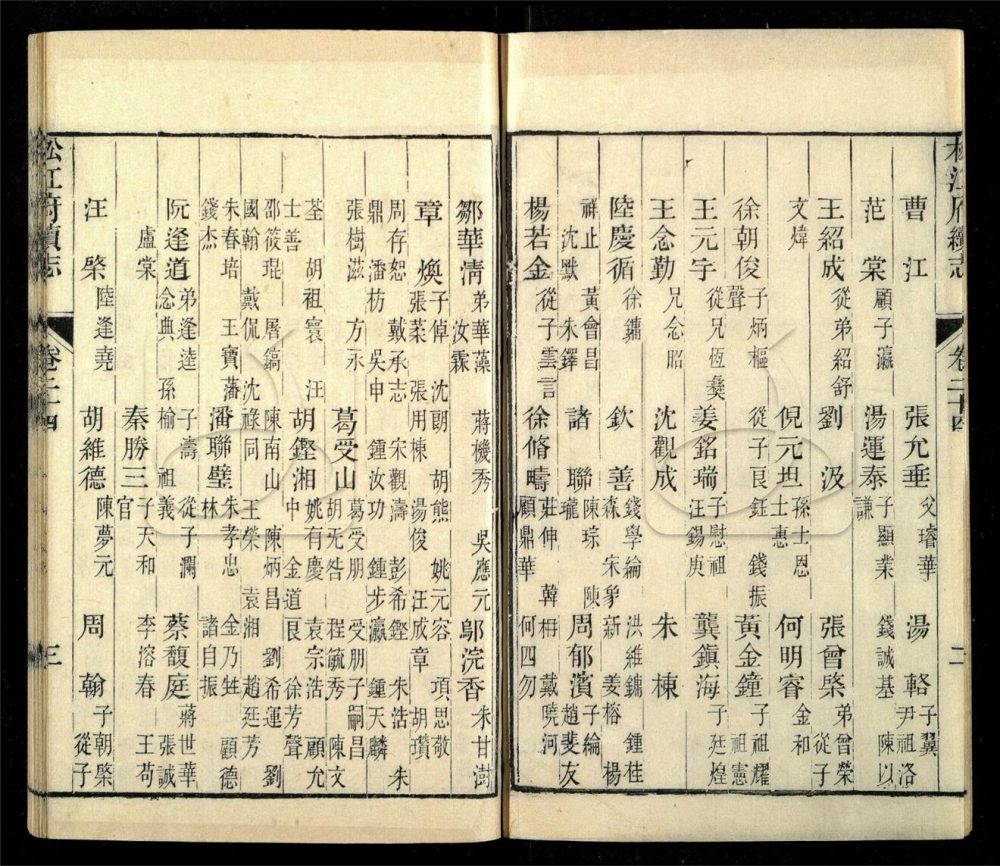 松江府續志 卷二十四 二
曹江 張允垂 父璿華 湯輅 子翼 尹祖洛
范棠 顧子瀛 湯運泰 子顯業 謙 錢誠基 陳以
王紹成 從弟紹舒 劉汲 張曾棨 弟曾榮 從子
文煒 倪元坦 孫士恩 士惠 何明睿 金和
徐朝俊 子炳樞 聲 從子艮鈺 錢振 黃金鐘 子祖耀 祖憲
王元宇 從兄恆彝 姜銘瑞 子慰祖 汪錫庚 龔鎮海 子廷煌
王念勤 兄念昭 沈觀成 朱棟
陸慶循 徐鏞 欽善 錢學綸 洪維鏞 鍾桂 森 宋 新 姜榕 楊
祥止 黃會昌 沈默 朱鐸 諸聯 陳琮 陳 瓏 周郁濱 子綸 趙斐友
楊若金 從子雲言 徐脩疇 莊伸 韓 栴 戴曉河 顧鼎華 何四勿
鄒華清 弟華藻 汝霖 蔣機秀 吳應元 鄔浣香 朱甘澍
章煥 子倬 沈朗 胡熊 姚元容 項思敬 張葉 張用棟 湯俊 汪成章 胡瓚
周存恕 戴承志 宋觀濤 彭希鏗 朱浩 朱 鼎 潘枋 吳申 鍾汝功 鍾步瀛 鍾天麟
張樹滋 方永 葛受山 葛受朋 受朋子嗣昌 胡旡咎 程毓秀 陳文
荃 胡祖寰 汪 士善 胡鏗湘 姚有慶 袁宗浩 顧允 中 金道艮 徐芳聲
邵筱琨 屠鎬 陳南山 陳炳昌 劉希運 劉 國翰 戴侃 沈祿同 王榮 袁湘 趙廷芳
朱春培 王寶藩 錢杰 潘聯璧 朱孝忠 金乃甡 顧德 林 諸自振
阮逢道 弟逢逵 孫榆 祖 念典 子濤 從子瀾 義 蔡馥庭 蔣世華 張誠
盧棠 秦勝三 子天和 官 李溶春 王苟
汪棨 陸逢堯 胡維德 陳夢元 周翰 子朝棨 從子
松江府續志 卷二十四 三